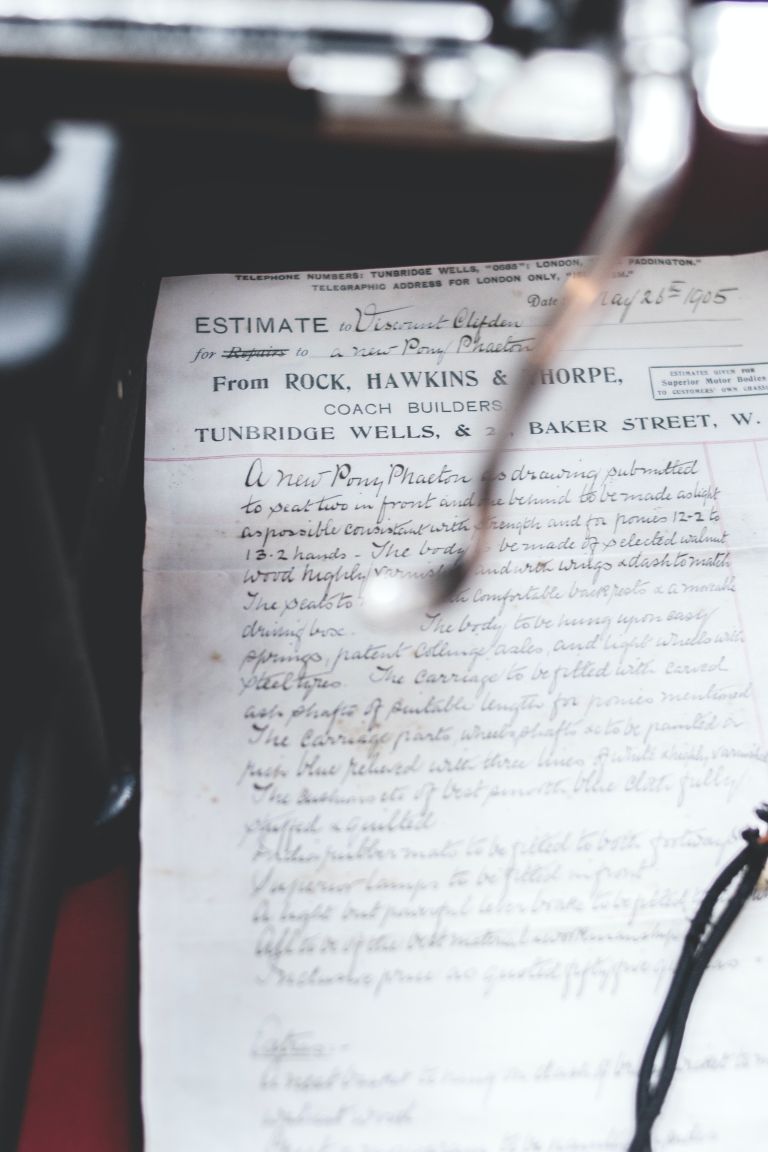 TELEPHONE NUMBERS: TUNBRIDGE WELLS, "0685"; LONDON, PADDINGTON."
TELEGRAPHIC ADDRESS FOR LONDON ONLY,
Date May 26th 1905
ESTIMATE to Viscount Clifden
for Repairs to a new Pony Phaeton
From ROCK, HAWKINS & THORPE,
ESTIMATES GIVEN FOR
Superior Motor Bodies
TO CUSTOMERS' OWN CHASSIS
COACH BUILDERS,
TUNBRIDGE WELLS, & BAKER STREET, W.
A new Pony Phaeton as drawing submitted
to seat two in front and one behind to be made as light
as possible consistent with strength and for ponies 12-2 to
13-2 hands - The body to be made of selected walnut
wood highly varnished and with wings & dash to match
The seats to with comfortable backrests & a moveable
driving box. The body to be hung upon easy
springs, patent collinge axles, and light wheels with
steel tyres. The carriage to be fitted with carved
ash shafts of suitable length for ponies mentioned
The carriage parts, wheels, shafts &c to be painted a
rich blue relieved with three lines of white & highly varnished
The cushions etc of best smooth blue cloth fully
stuffed & quilted
India rubber mats to be fitted to both footways
Superior lamps to be fitted in front
A light but powerful lever brake to be fitted to
All to be of the best material & workmanship
Inclusive price as quoted fifty five
Extras.-
A neat basket to hang on dash of
walnut wood